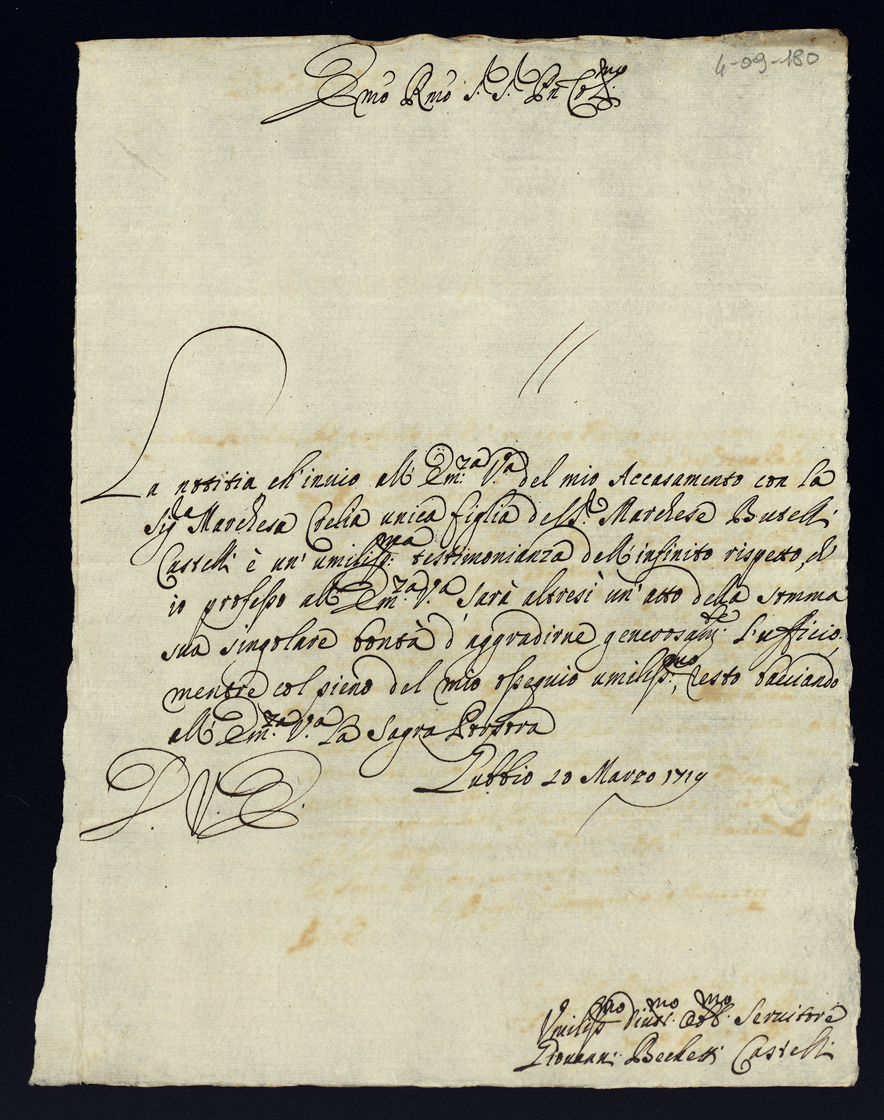 4-09-180
Emo Rmo S.r S.r Pñ Colmo
La notitia ch'invio all'Em.za V.a del mio Accasamento con la
Sig.ra Marchesa Clelia unica figlia del S.r Marchese Butelli
Castelli è un' umiliss.ma testimonianza dell'infinito rispetto, ch'
io professo all'Em.za V.a Sarà altresì un'atto della somma
sua singolare bontà d'aggradirne generosam.te l'ufficio,
mentre col pieno del mio ossequio umiliss.mo, resto bacciando
all'Em.za V.a la Sagra Porpora
Gubbio 20 Marzo 1719
D. V. E.
Umiliss.mo Divot.mo Obb.mo Servitore
Giovanni Becchetti Castelli